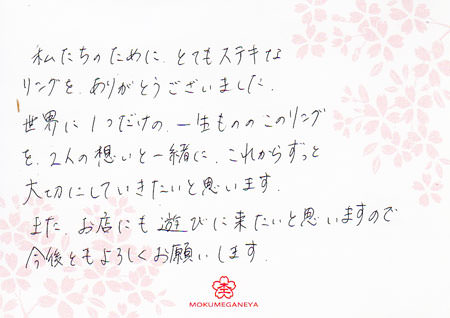 私たちのために、とてもステキな
リングを、ありがとうございました。
世界に1つだけの、一生もののこのリング
を、2人の想いと一緒に、これからずっと
大切にしていきたいと思います。
また、お店にも遊びに来たいと思いますので
今後ともよろしくお願いします。
杢
MOKUMEGANEYA